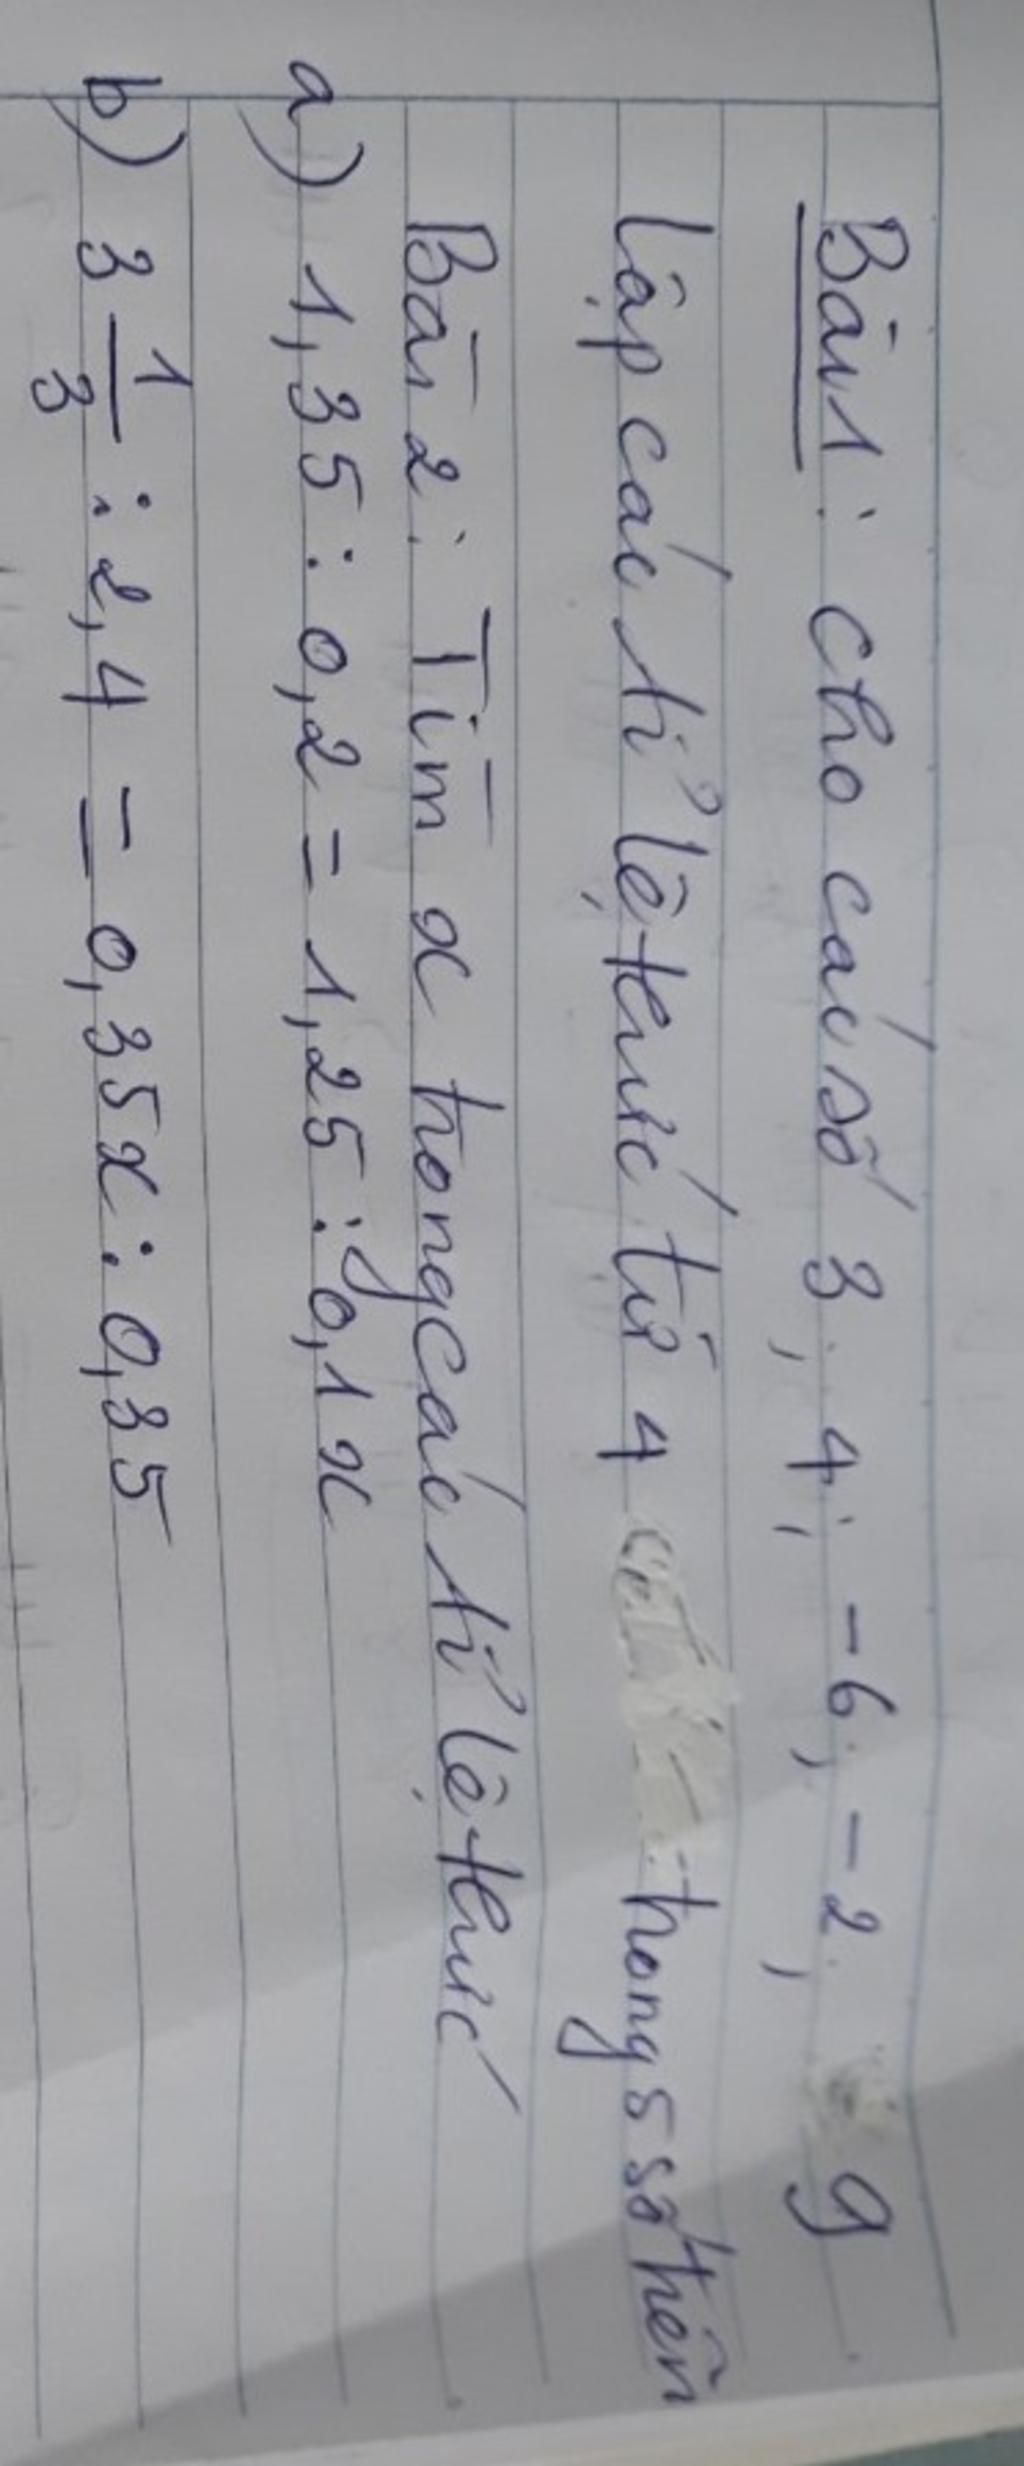 Bài 1: Cho các số 3; 4; -6; -2; 9
Lập các tỉ lệ thức từ 4 trong 5 số trên
Bài 2: Tìm x trong các tỉ lệ thức
a) 1,35 : 0,2 = 1,25 : 0,1x
b) 3 1/3 : 2,4 = 0,35x : 0,35